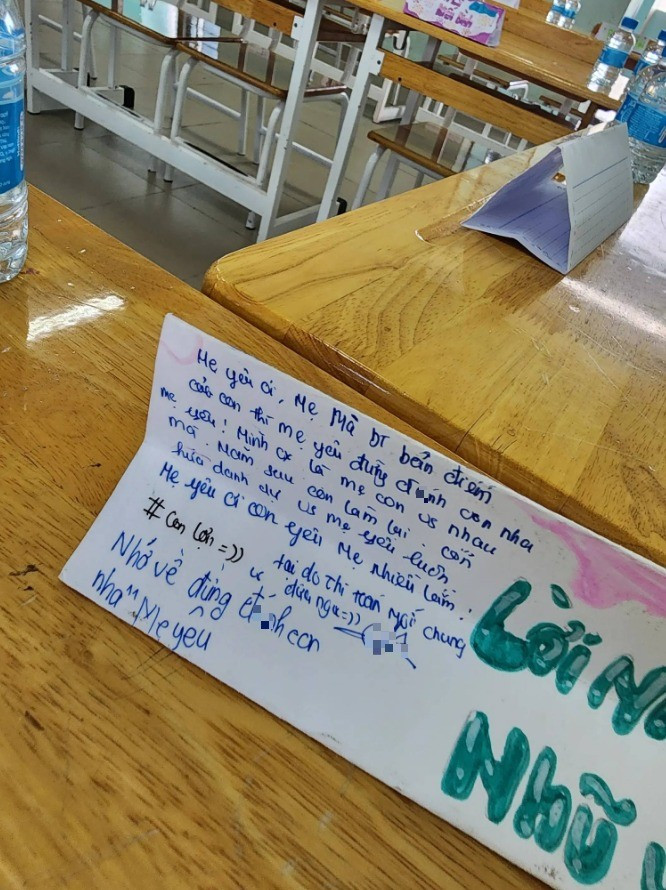 Mẹ yêu ơi, Mẹ Mà DT bản điểm
của con thì mẹ yêu đừng đánh con nha
mẹ yêu! Mình là mẹ con vs nhau
mà. Năm sau con làm lại. Con
hứa danh dự vs mẹ yêu luôn
Mẹ yêu ơi con yêu Mẹ nhiều lắm!
#Con lợn =))
tại do thi toán ngồi chung
vs đứa ngu =))
Nhớ về đừng đánh con
nha "Mẹ yêu
Lời N
Nhữ